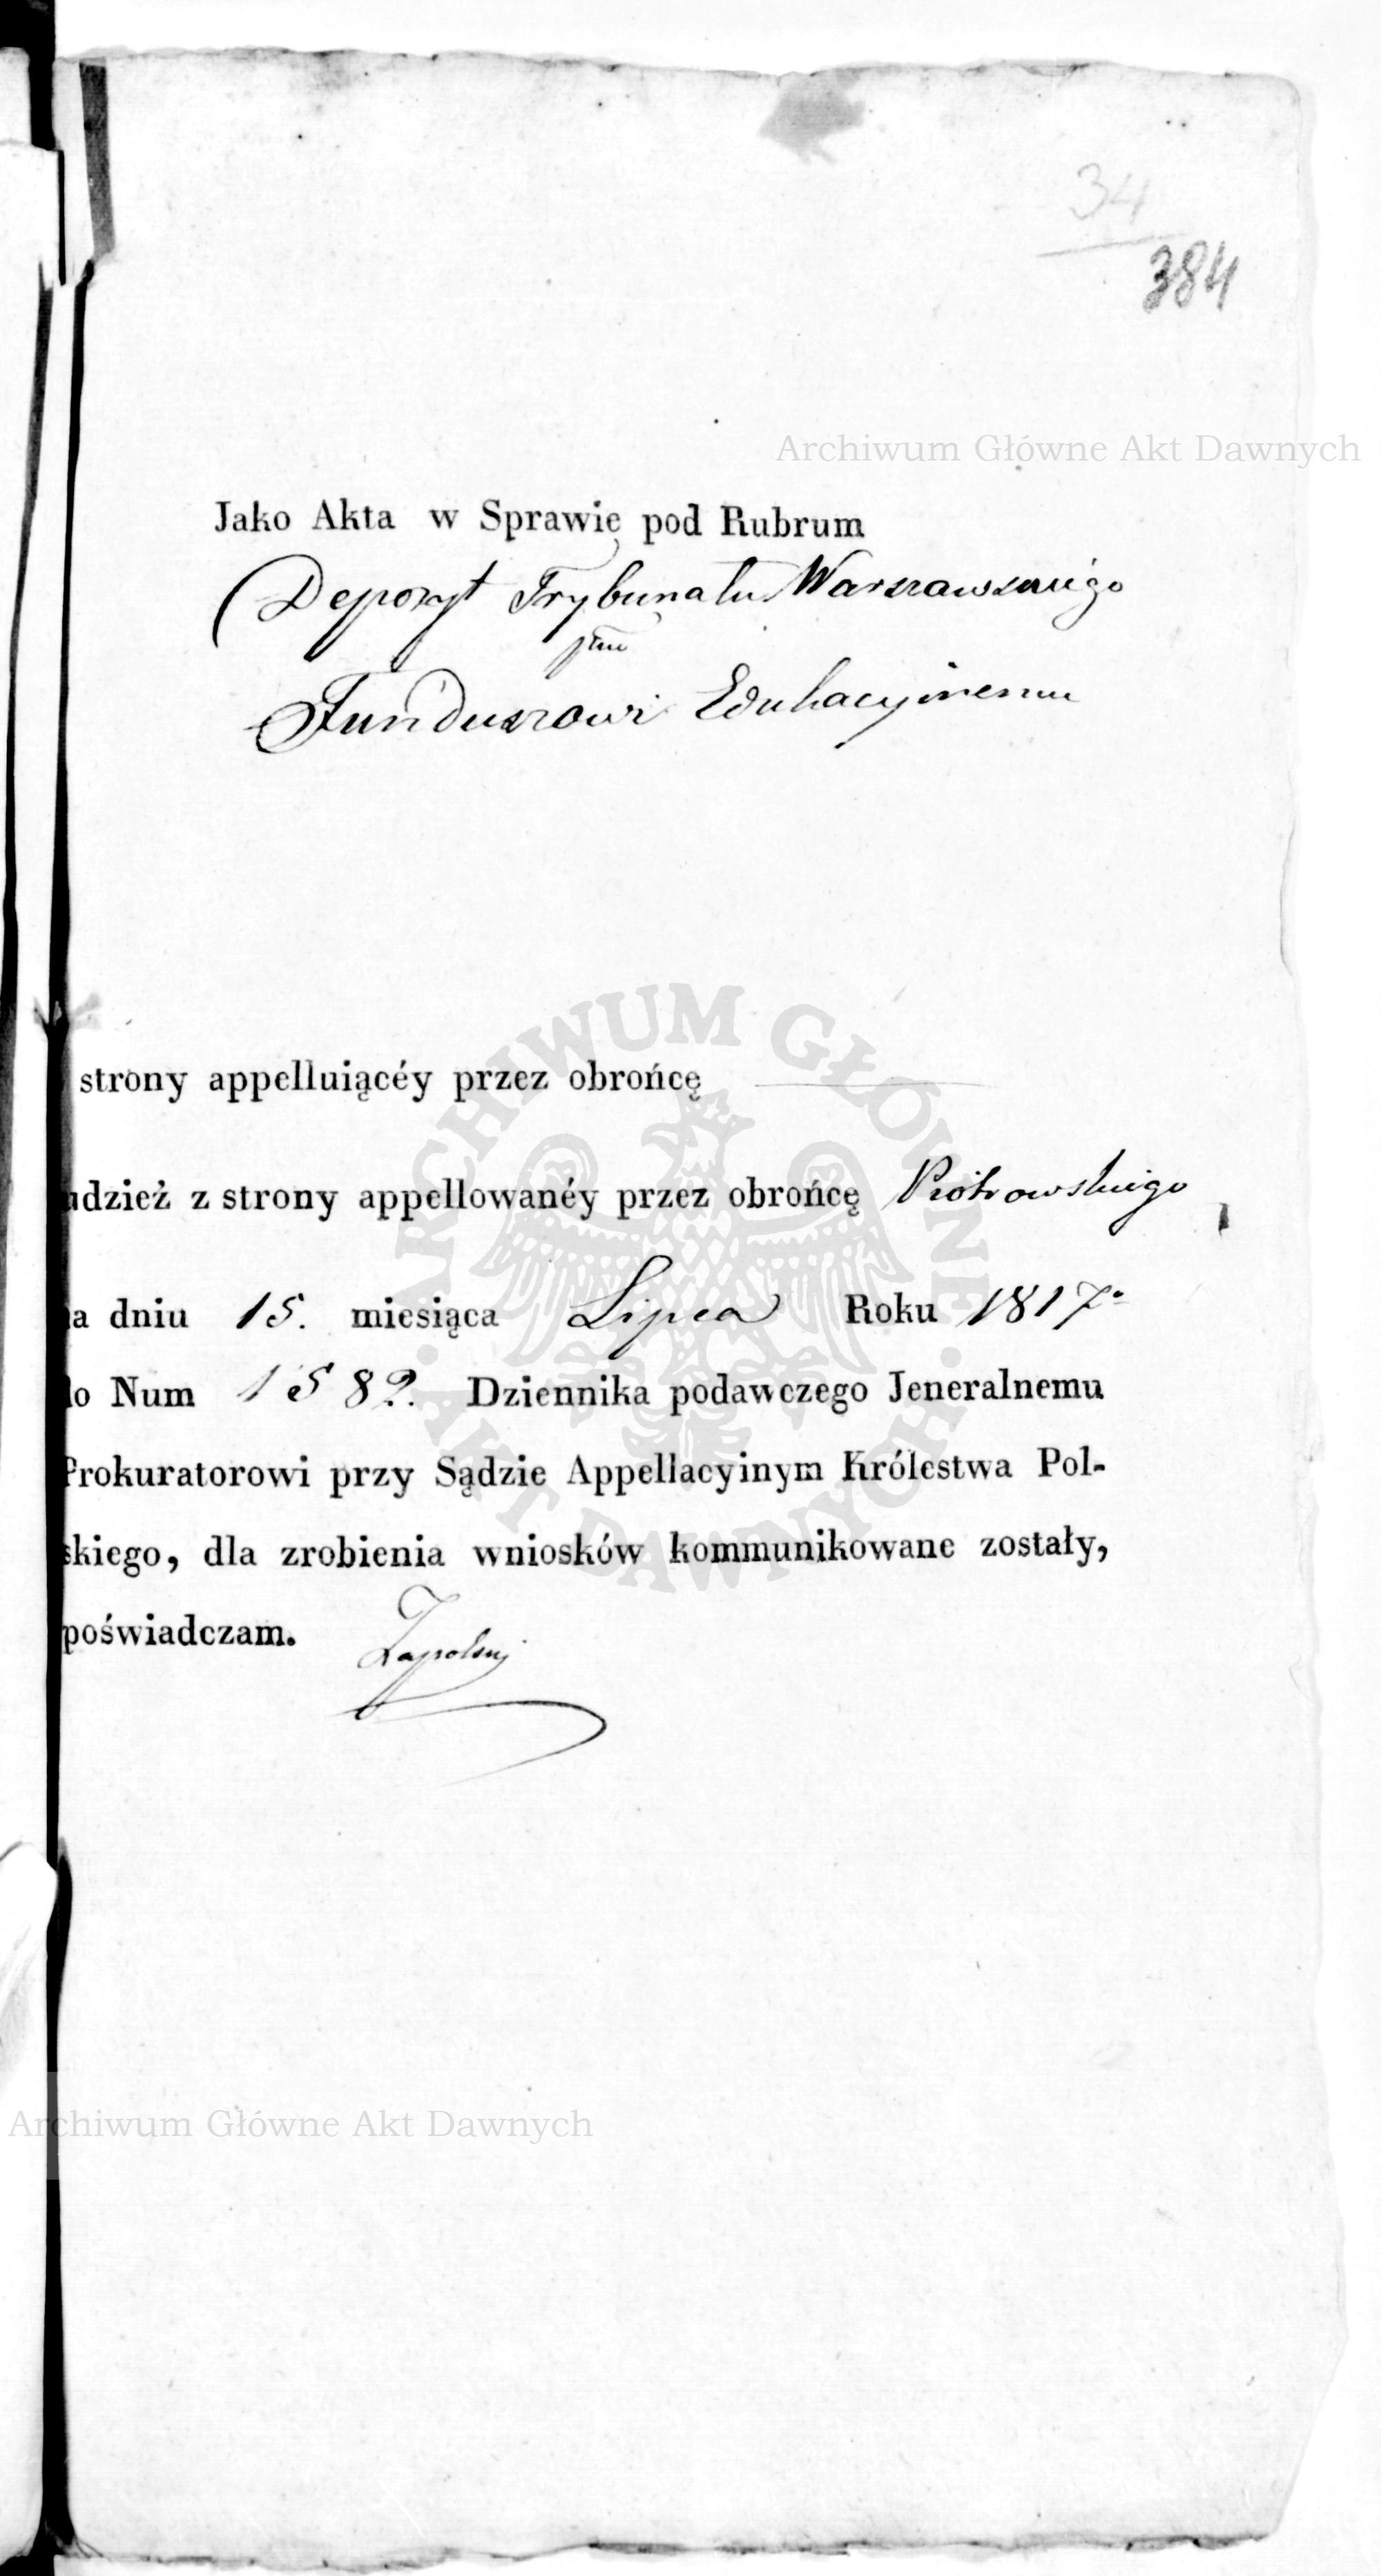 34
384
Archiwum Główne Akt Dawnych
Jako Akta w Sprawie pod Rubrum
Depozyt Trybunału Warszawskiego
ptko
Funduszowi Edukacyinemu
ARCHIWUM GŁÓWNE
strony appelluiącéy przez obrońcę
udzież z strony appellowanéy przez obrońcę Piotrowskiego
a dniu 15. miesiąca Lipca Roku 1817o
do Num 1582. Dziennika podawczego Jeneralnemu
Prokuratorowi przy Sądzie Appellacyinym Królestwa Pol-
skiego, dla zrobienia wniosków kommunikowane zostały,
poświadczam. Zapolski
AKT DAWNYCH
Archiwum Główne Akt Dawnych